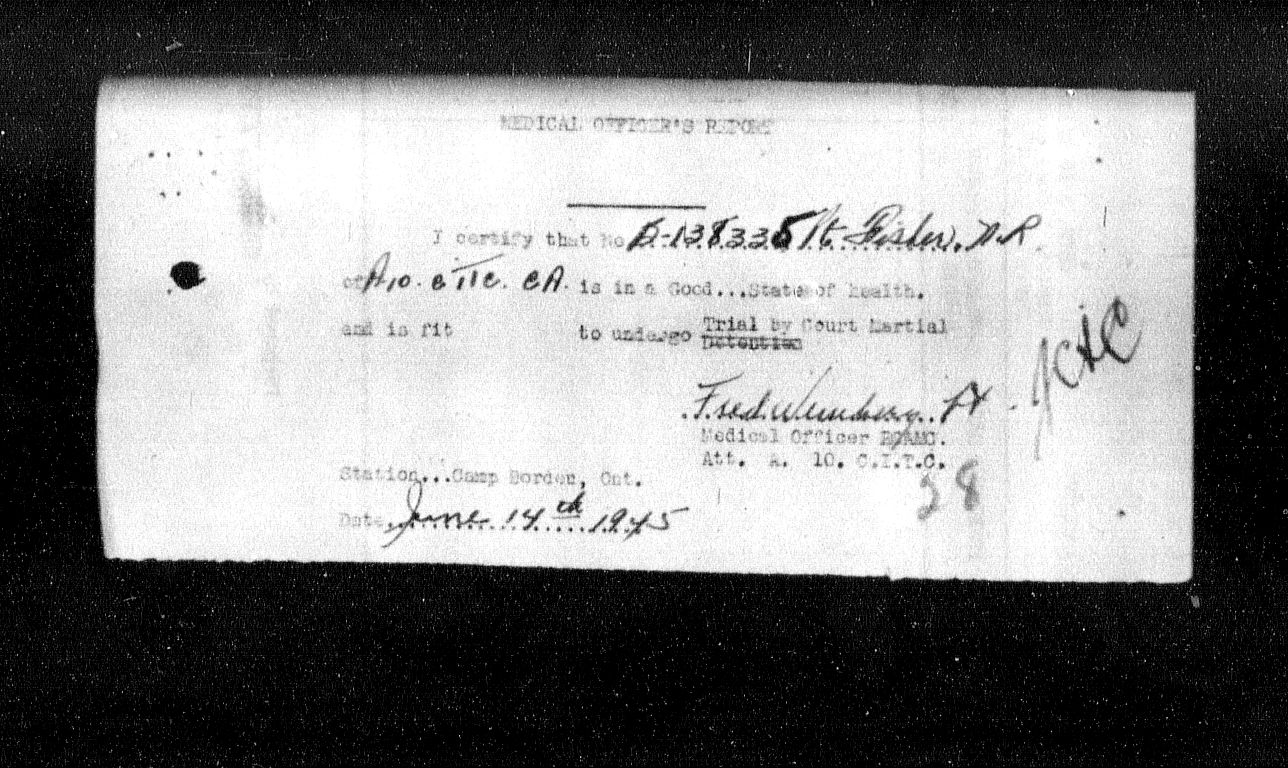 MEDICAL OFFICER'S REPORT
I certify that No B-138335 Pte Fisher. D.R.
of A10. C.I.T.C. CA. is in a Good...State of health.
and is fit to undergo Trial by Court Martial
Detention
Fred Weinberg. Lt
Medical Officer RCAMC.
Att. A. 10. C.I.T.C.
Station...Camp Borden, Ont.
Date June 14th 1945
38